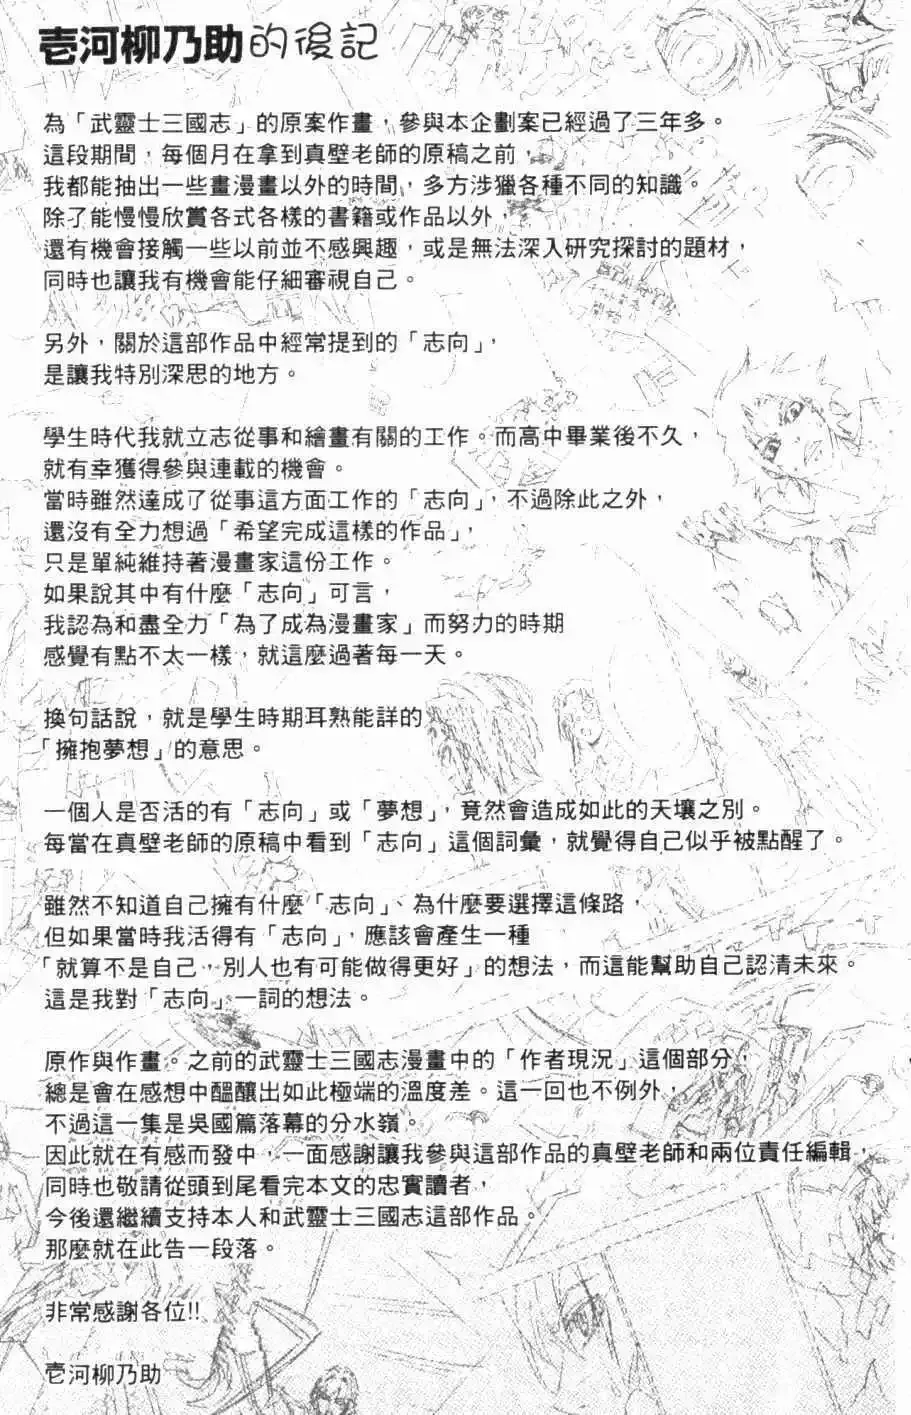 壱河柳乃助的後記
為「武靈士三國志」的原案作畫，參與本企劃案已經過了三年多。
這段期間，每個月在拿到真壁老師的原稿之前，
我都能抽出一些畫漫畫以外的時間，多方涉獵各種不同的知識。
除了能慢慢欣賞各式各樣的書籍或作品以外，
還有機會接觸一些以前並不感興趣，或是無法深入研究探討的題材，
同時也讓我有機會能仔細審視自己。
另外，關於這部作品中經常提到的「志向」，
是讓我特別深思的地方。
學生時代我就立志從事和繪畫有關的工作。而高中畢業後不久，
就有幸獲得參與連載的機會。
當時雖然達成了從事這方面工作的「志向」，不過除此之外，
還沒有全力想過「希望完成這樣的作品」，
只是單純維持著漫畫家這份工作。
如果說其中有什麼「志向」可言，
我認為和盡全力「為了成為漫畫家」而努力的時期
感覺有點不太一樣，就這麼過著每一天。
換句話說，就是學生時期耳熟能詳的
「擁抱夢想」的意思。
一個人是否活的有「志向」或「夢想」，竟然會造成如此的天壤之別。
每當在真壁老師的原稿中看到「志向」這個詞彙，就覺得自己似乎被點醒了。
雖然不知道自己擁有什麼「志向」、為什麼要選擇這條路，
但如果當時我活得有「志向」，應該會產生一種
「就算不是自己，別人也有可能做得更好」的想法，而這能幫助自己認清未來。
這是我對「志向」一詞的想法。
原作與作畫。之前的武靈士三國志漫畫中的「作者現況」這個部分，
總是會在感想中醞釀出如此極端的溫度差。這一回也不例外，
不過這一集是吳國篇落幕的分水嶺。
因此就在有感而發中，一面感謝讓我參與這部作品的真壁老師和兩位責任編輯，
同時也敬請從頭到尾看完本文的忠實讀者，
今後還繼續支持本人和武靈士三國志這部作品。
那麼就在此告一段落。
非常感謝各位!!
壱河柳乃助